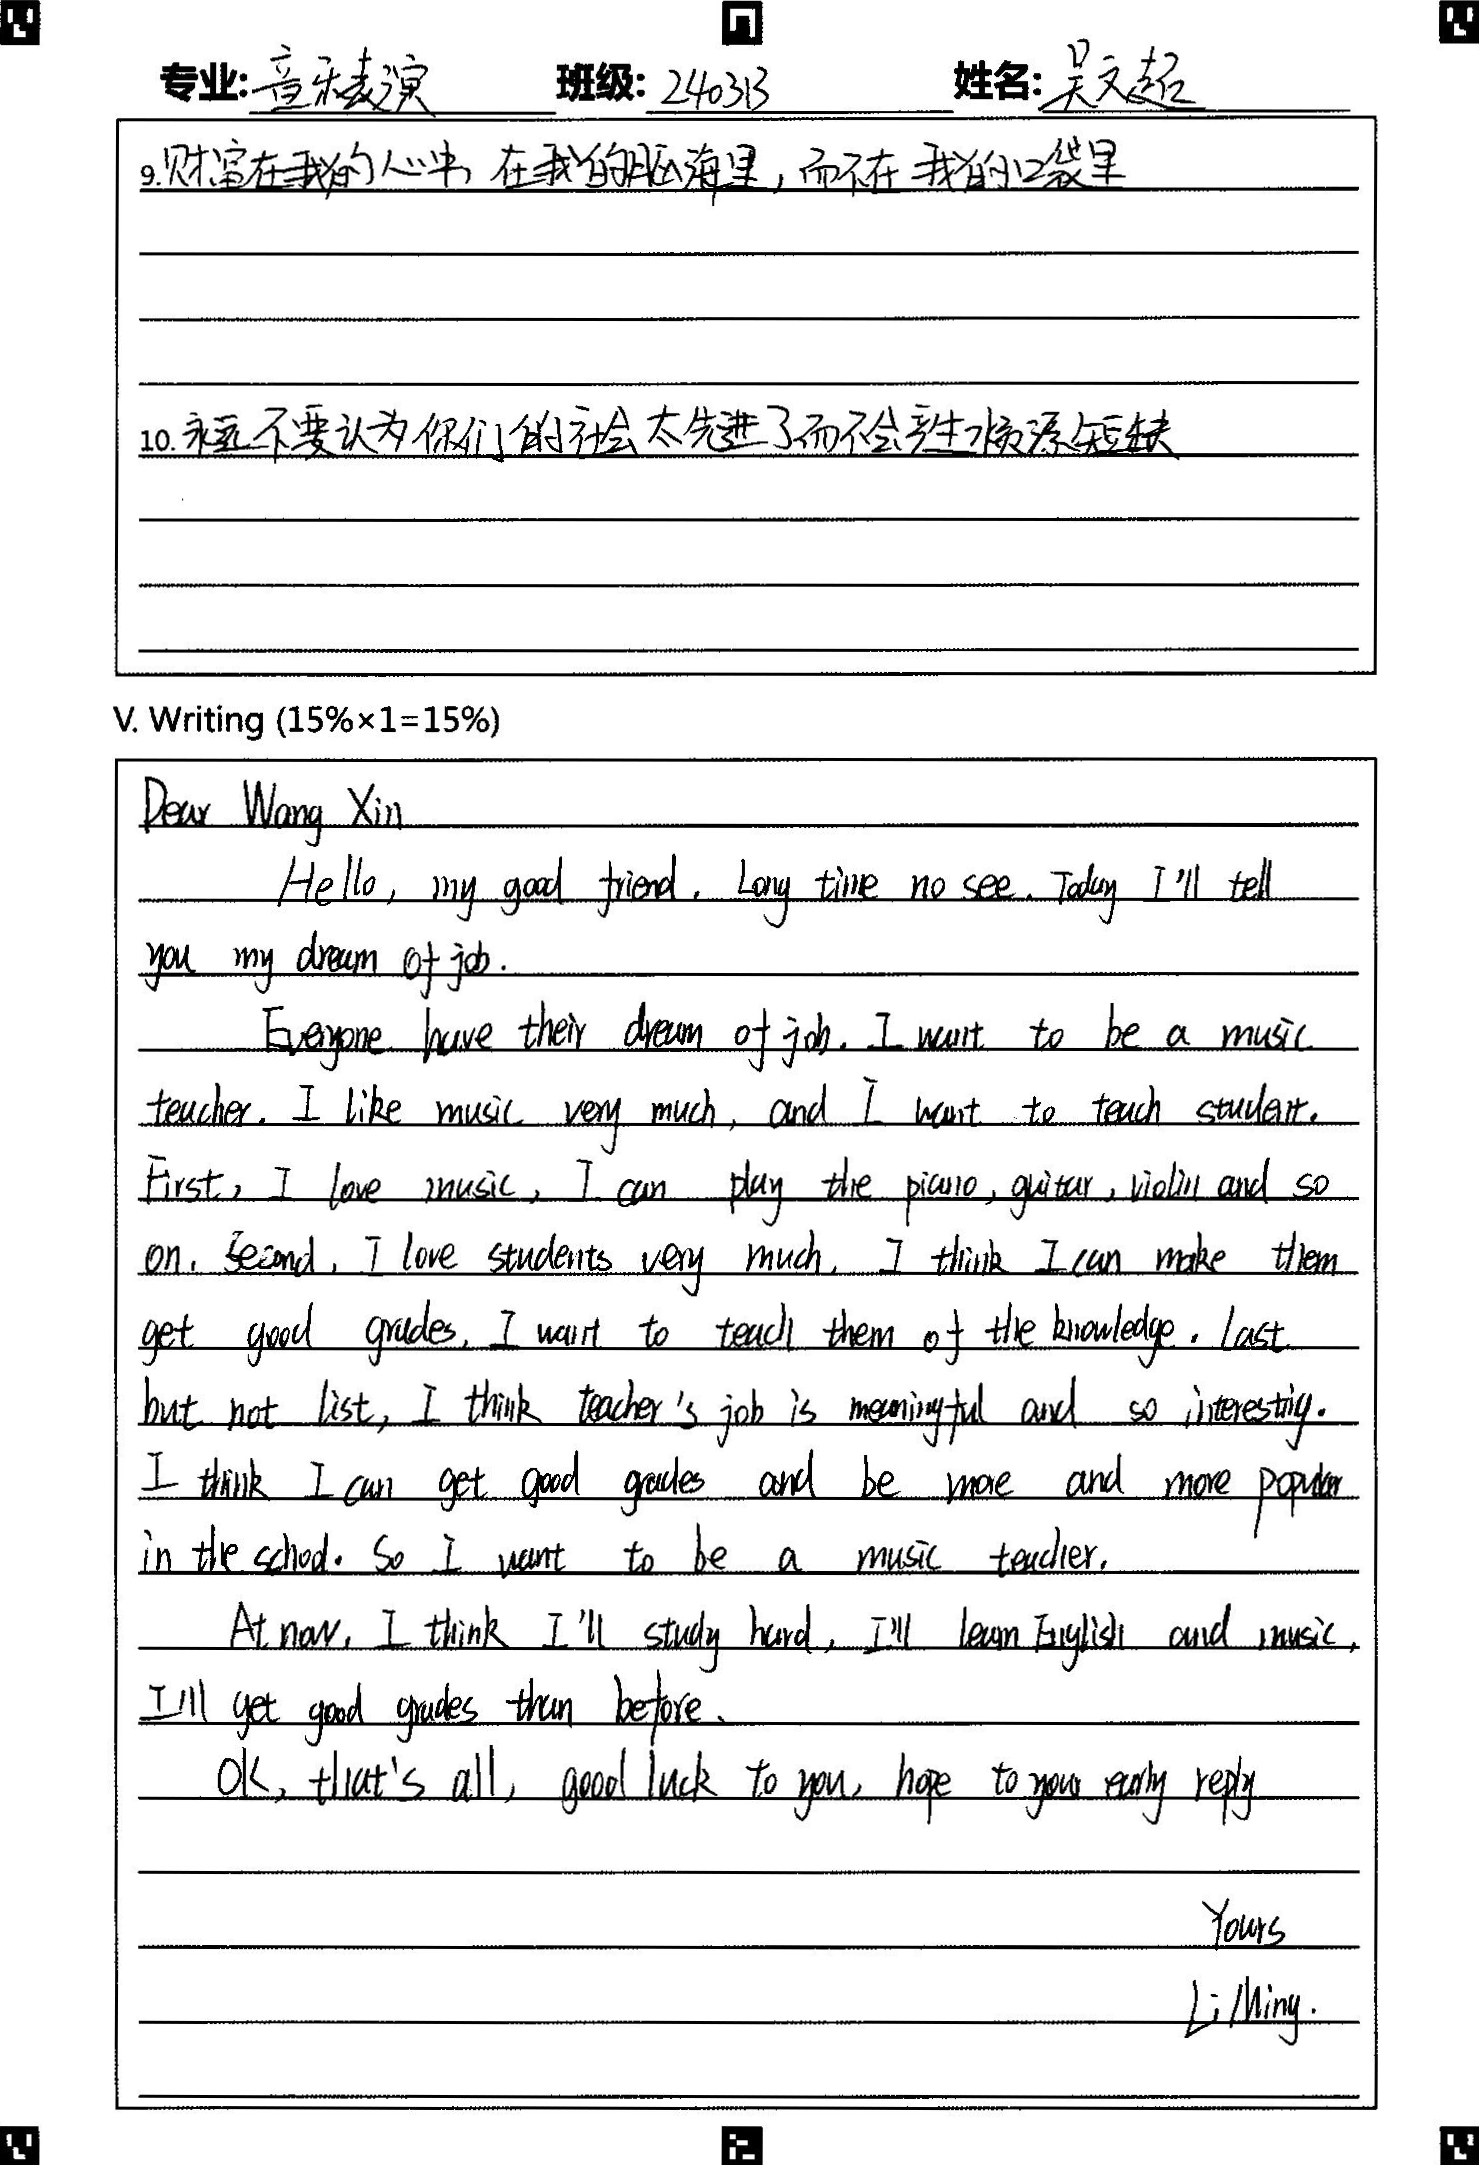 专业: 音乐表演 班级: 240313 姓名: 吴文超
9. 财富在我的心中 在我的脑海里，而不在我的口袋里
10. 永远不要认为你们的社会太先进了而不会产生水资源短缺
V. Writing (15%×1=15%)
Dear Wang Xin
Hello, my good friend. Long time no see. Today I'll tell
you my dream of job.
Everyone have their dream of job. I want to be a music
teacher. I like music very much, and I want to teach student.
First, I love music, I can play the piano, guitar, violin and so
on. Second, I love students very much. I think I can make them
get good grades, I want to teach them of the knowledge. Last
but not list, I think teacher's job is meaningful and so interesting.
I think I can get good grades and be more and more popular
in the school. So I want to be a music teacher.
At now, I think I'll study hard, I'll learn English and music,
I'll get good grades than before.
OK, that's all, good luck to you, hope to your early reply
Yours
Li Ming.